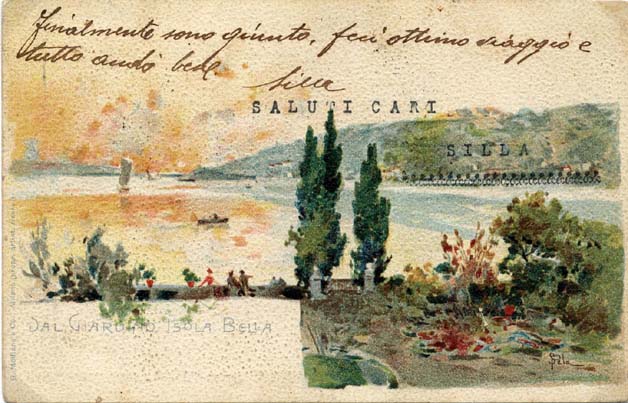 Finalmente sono giunto, feci ottimo viaggio e
tutto andò bene
Silla
SALUTI CARI
SILLA
DAL GIARDINO, ISOLA BELLA